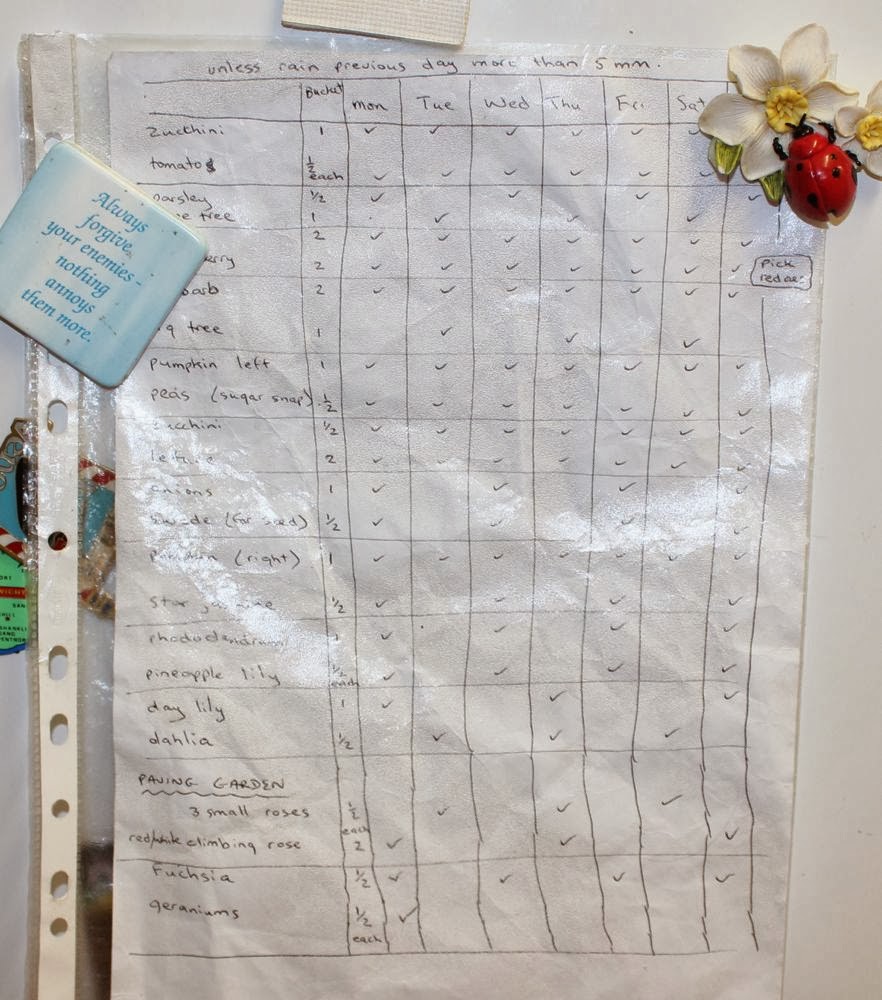 unless rain previous day more than 5 mm.
Bucket Mon Tue Wed Thu Fri Sat
Zucchini 1 ✓ ✓ ✓ ✓ ✓ ✓
tomatos ½ each ✓ ✓ ✓ ✓ ✓ ✓
parsley ½ ✓ ✓ ✓ ✓
e tree 1 ✓ ✓ ✓
2 ✓ ✓ ✓ ✓ ✓ ✓ ✓
erry 2 ✓ ✓ ✓ ✓ ✓ ✓ ✓
Pick
red
arb 2 ✓ ✓ ✓ ✓ ✓ ✓ ✓
tree 1 ✓ ✓ ✓
pumpkin left 1 ✓ ✓ ✓ ✓ ✓ ✓ ✓
peas (sugar snap) ½ ✓ ✓ ✓ ✓ ✓ ✓ ✓
zucchini ½ ✓ ✓ ✓ ✓ ✓ ✓ ✓
2 ✓ ✓ ✓ ✓ ✓ ✓ ✓
onions 1 ✓ ✓ ✓ ✓
swede (for seed) ½ ✓ ✓ ✓ ✓
pumpkin (right) 1 ✓ ✓ ✓ ✓ ✓ ✓ ✓
star jasmine ½ ✓ ✓ ✓ ✓
1 ✓ ✓ ✓ ✓
pineapple lily ½ each ✓ ✓ ✓ ✓
day lily 1 ✓ ✓ ✓
dahlia ½ ✓ ✓ ✓
PAVING GARDEN
3 small roses ½ each ✓ ✓ ✓
red/white climbing rose 2 ✓ ✓ ✓
Fuchsia ½ ✓ ✓ ✓ ✓
geraniums ½ each ✓
Always
forgive
your enemies -
nothing
annoys
them more.